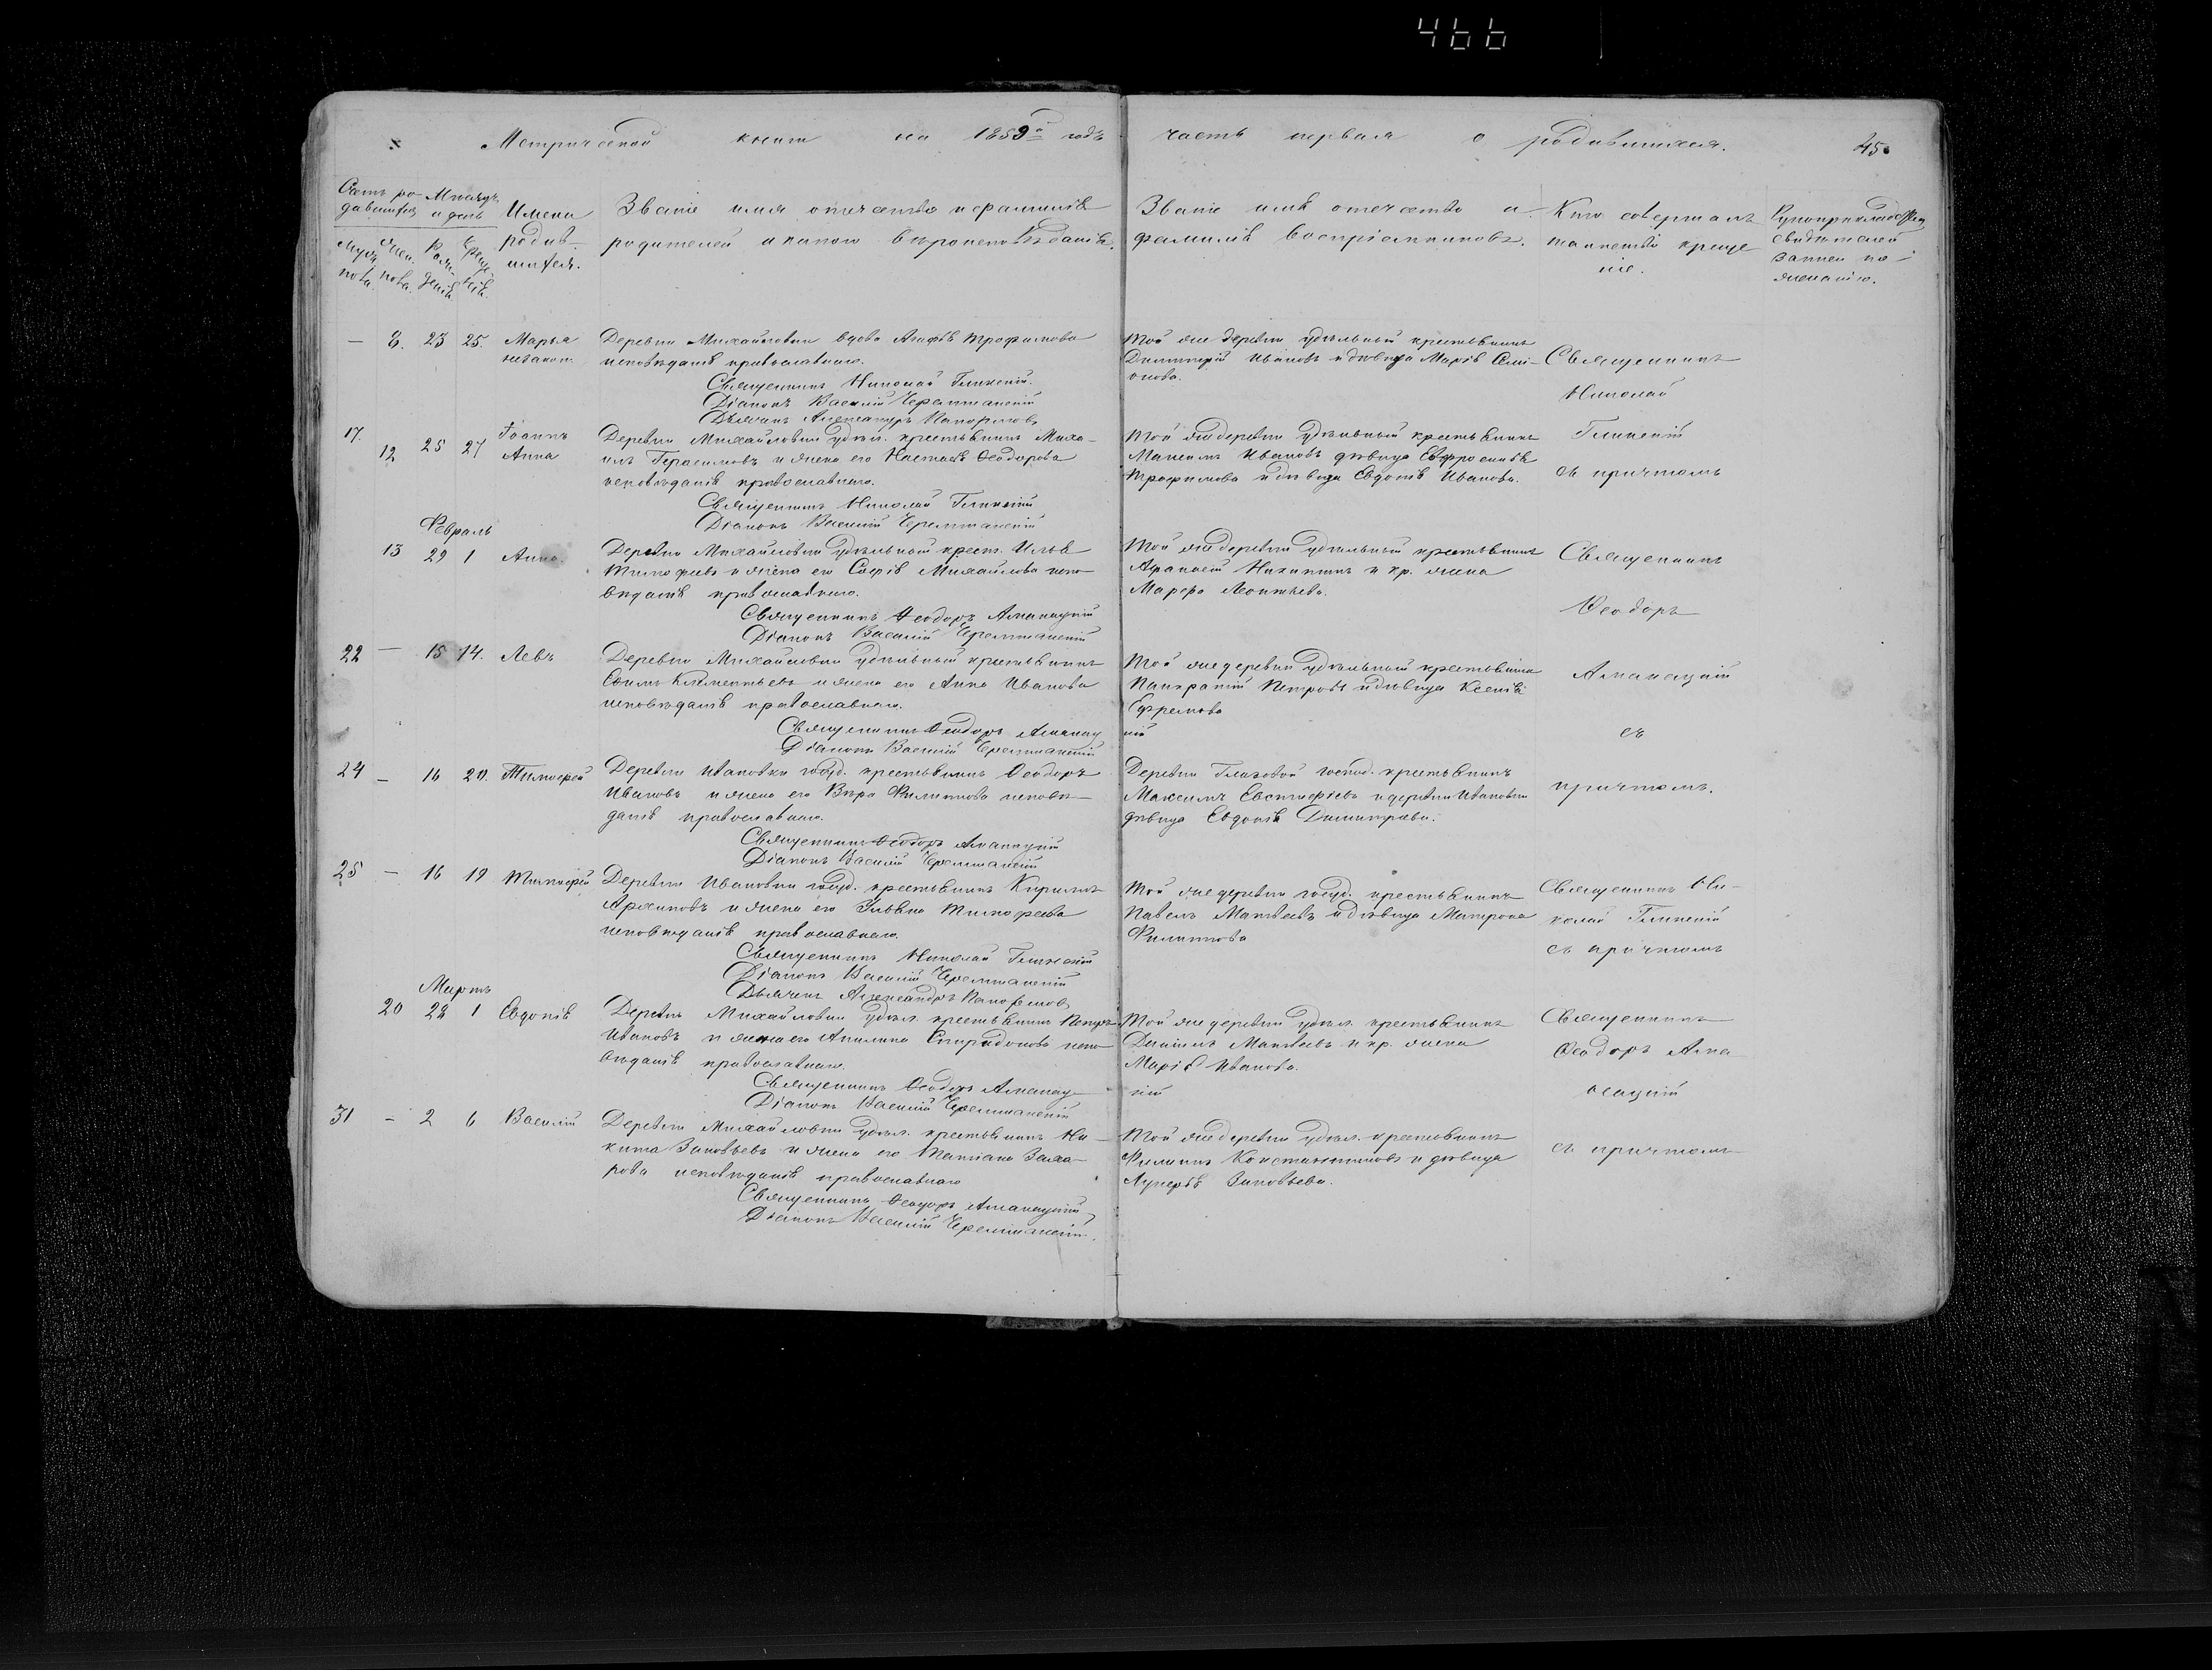 466
Метрической книги на 1859й годъ часть первая о родившихся. 45
Счетъ ро- Мѣсяцъ
давшихся и день
Имена
родив-
шихся.
Званіе имя отчество и фамилія
родителей и какого вѣроисповѣданія.
Званіе имя отчество и
фамилія воспріемниковъ.
Кто совершалъ
таинство креще
ніе.
Рукоприкладство
свидѣтелей
записи по
желанію.
мужеска
женска
рожденія
крещенія
— 8. 23 25. Марья
незакон.
Деревни Михайловки вдова Агафія Трофимова
исповѣданія православнаго.
Священникъ Николай Глинскій.
Діаконъ Василій Черемшанскій
Дьячекъ Александръ
Той же деревни удѣльный крестьянинъ
Димитрій Ивановъ и дѣвица Марія Сели-
онова.
Священникъ
Николай
17.
12 25 27 Іоаннъ
Анна
Деревни Михайловки удѣл. крестьянинъ Миха-
илъ Герасимовъ и жена его Настасія Ѳеодорова
исповѣданія православнаго.
Священникъ Николай Глинскій
Діаконъ Василій Черемшанскій
Той же деревни удѣльный крестьянинъ
Максимъ Ивановъ дѣвица Евфросинія
Трофимова и дѣвица Евдокія Иванова.
Глинскій
съ причтомъ
Февраль
13 29 1 Анна
Деревни Михайловки удѣльный крест. Илья
Тимофеевъ и жена его Софія Михайлова испо-
вѣданія православнаго.
Священникъ Ѳеодоръ Алмазацкій
Діаконъ Василій Черемшанскій
Той же деревни удѣльный крестьянинъ
Афанасій Никитинъ и кр. жена
Марфа Леонтьева.
Священникъ
Ѳеодоръ
22 — 15 14. Левъ
Деревни Михайловки удѣльный крестьянинъ
Ефимъ Климентьевъ и жена его Анна Иванова
исповѣданія православнаго.
Священникъ Ѳеодоръ Алмазац
Діаконъ Василій Черемшанскій
Той же деревни удѣльный крестьянинъ
Панкратій Петровъ и дѣвица Ксенія
Ефремова
кій
Алмазацкій
съ
24 — 16 20. Тимофей
Деревни Ивановки госуд. крестьянинъ Ѳеодоръ
Ивановъ и жена его Вѣра Филиппова исповѣ-
данія православнаго.
Священникъ Ѳеодоръ Алмазацкій
Діаконъ Василій Черемшанскій
Деревни Глазовой госуд. крестьянинъ
Максимъ Евстафіевъ и деревни Ивановки
дѣвица Евдокія Димитріева.
причтомъ.
25 — 16 19 Тимофей
Деревни Ивановки госуд. крестьянинъ Кириллъ
Архиповъ и жена его Улья́на Тимофеева
исповѣданія православнаго.
Священникъ Николай Глинскій
Діаконъ Василій Черемшанскій
Дьячекъ Александръ
Той же деревни госуд. крестьянинъ
Павелъ Матвеевъ и дѣвица Матрона
Филиппова
Священникъ Ни-
колай Глинскій
съ причтомъ
Мартъ
20 28 1 Евдокія
Деревни Михайловки удѣл. крестьянинъ Петръ
Ивановъ и жена его Акилина Спиридонова испо-
вѣданія православнаго.
Священникъ Ѳеодоръ Алмазац
Діаконъ Василій Черемшанскій
Той же деревни удѣл. крестьянинъ
Даніилъ Матвеевъ и кр. жена
Марія Иванова.
кій
Священникъ
Ѳеодоръ Алма
зацкій
31 — 2 6 Василій
Деревни Михайловки удѣл. крестьянинъ Ни-
кита Зиновьевъ и жена его Татіана Заха-
рова исповѣданія православнаго
Священникъ Ѳеодоръ Алмазацкій
Діаконъ Василій Черемшанскій.
Той же деревни удѣл. крестьянинъ
Филиппъ Константиновъ и дѣвица
Лукерія Зиновьева.
съ причтомъ